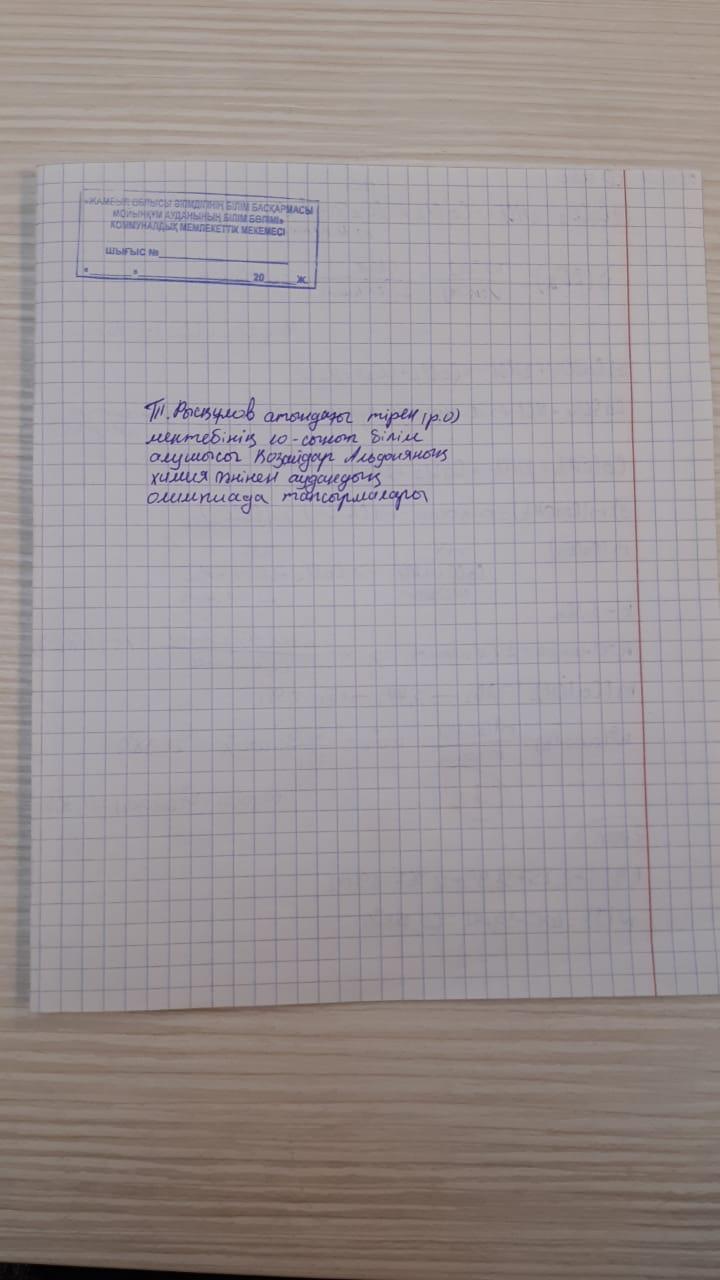 «ЖАМБЫЛ ОБЛЫСЫ ӘКІМДІГІНІҢ БІЛІМ БАСҚАРМАСЫ
МОЙЫНҚҰМ АУДАНЫНЫҢ БІЛІМ БӨЛІМІ»
КОММУНАЛДЫҚ МЕМЛЕКЕТТІК МЕКЕМЕСІ
ШЫҒЫС №
« » 20 Ж.
Т. Рысқұлов атындағы тірек (р.о)
мектебінің 10-сынып білім
алушысы
химия пәнінен аудандық
олимпиада тапсырмалары